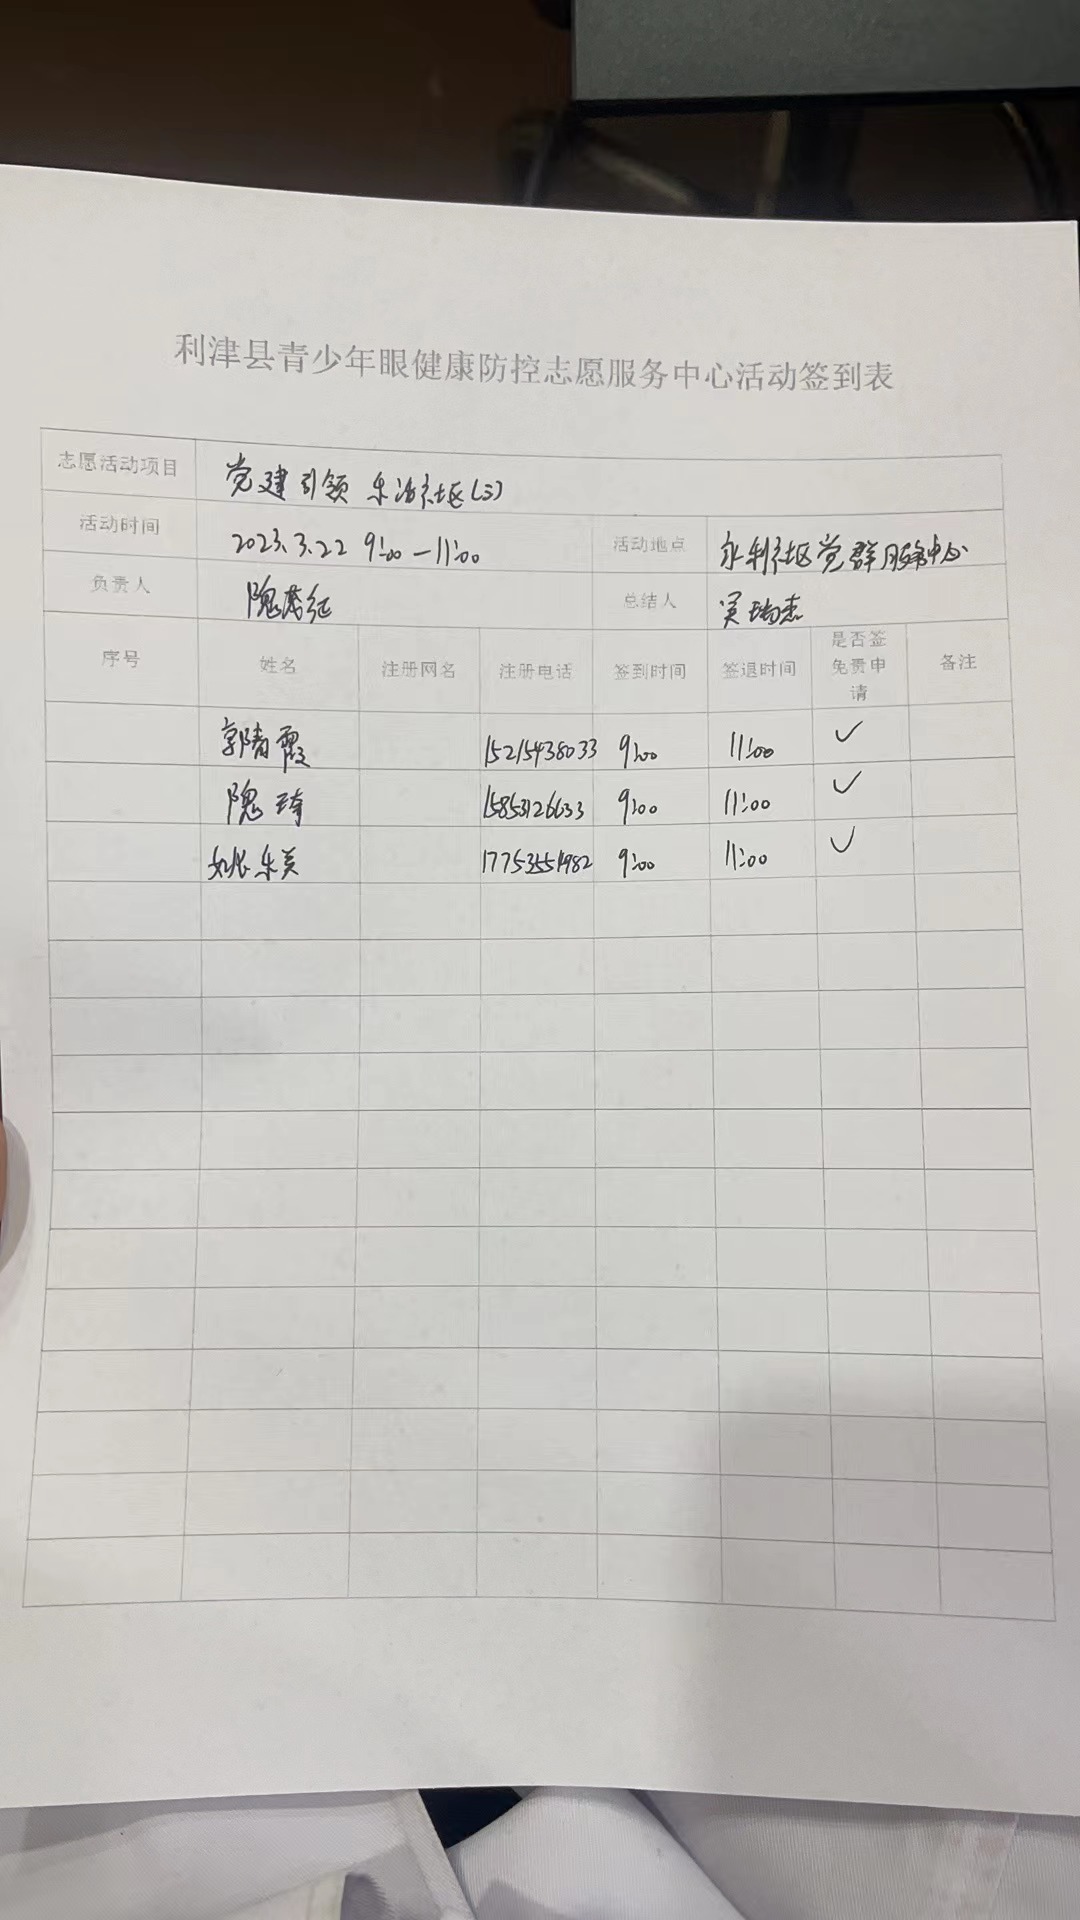 利津县青少年眼健康防控志愿服务中心活动签到表
志愿活动项目 党建引领 乐活社区(三)
活动时间 2023.3.22 9:00—11:00 活动地点 永利社区党群服务中心
负责人 隗 总结人 吴瑞杰
序号 姓名 注册网名 注册电话 签到时间 签退时间 是否签免责申请 备注
郭青霞 15215438033 9:00 11:00 ✓
隗琦 15853126633 9:00 11:00 ✓
姚乐美 17753551982 9:00 11:00 ✓